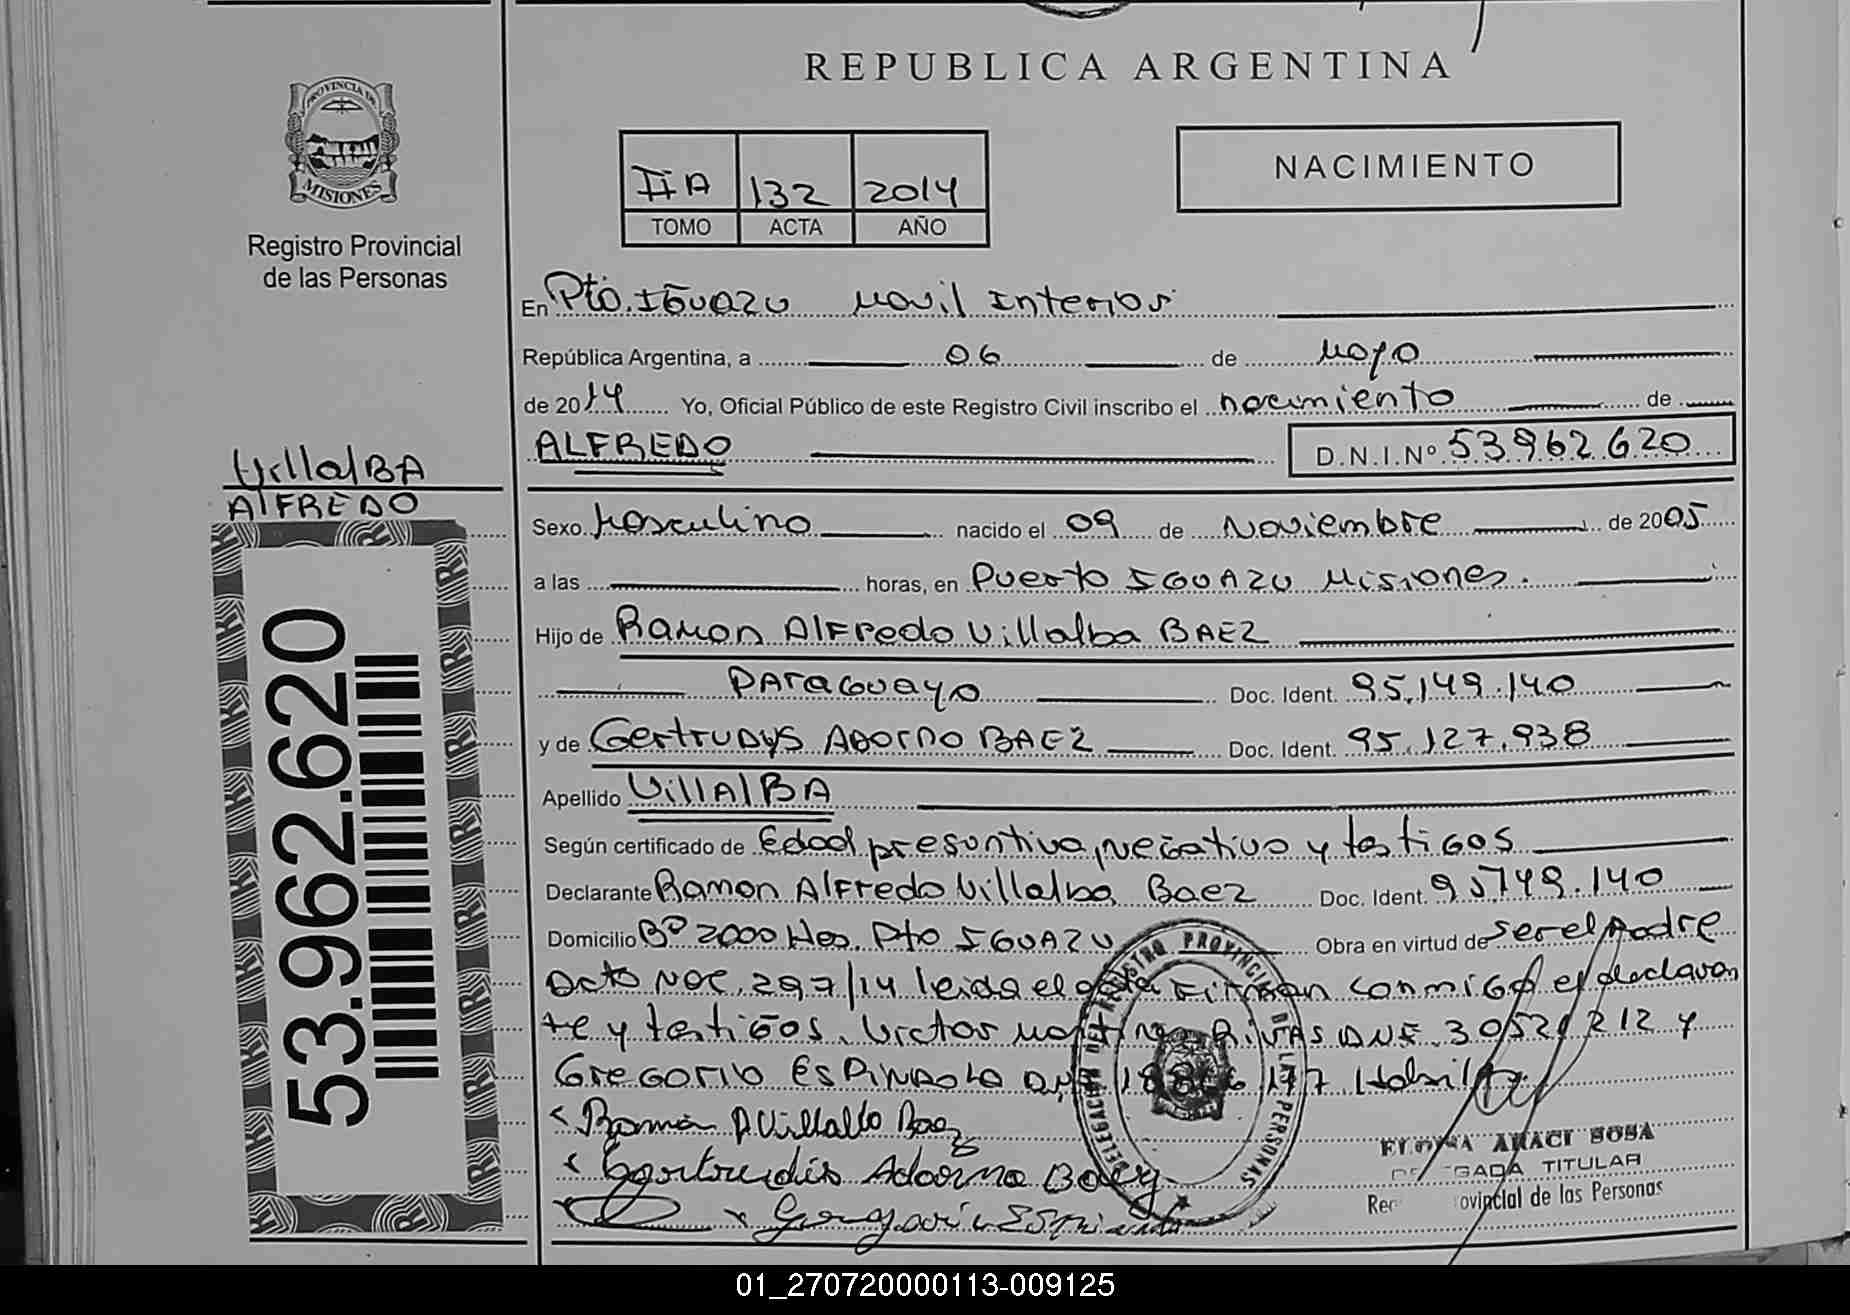 REPUBLICA ARGENTINA
PROVINCIA DE
MISIONES
Registro Provincial
de las Personas
IIA 132 2014
TOMO ACTA AÑO
NACIMIENTO
En Pto. IGUAZU Movil Interior
República Argentina, a 06 de Mayo
de 2014 Yo, Oficial Público de este Registro Civil inscribo el nacimiento de
ALFREDO D.N.I.Nº 53962620
VillalBA
AlFREDO
53.962.620
Sexo Masculino nacido el 09 de Noviembre de 2005
a las horas, en Puerto IGUAZU Misiones.
Hijo de Ramon AlFredo Villalba BAEZ
PAraGuayo Doc. Ident. 95.149.140
y de GertruDys ADOrNO BAEZ Doc. Ident. 95.127.938
Apellido VillAlBA
Según certificado de Edad presuntiva, neGativo y testiGos
Declarante Ramon AlFredo Villalba Baez Doc. Ident. 95149.140
Domicilio Bº 2000 Hes. Pto IGUAZU Obra en virtud de ser el padre
Acta Nac. 297/14 leida el acta Firman conmiGo el declaran
te y testiGos. Victor RIVAS DNI. 212 y
GREGORIO ESPINDOLA 177
Ramón A Villalba Baez
Gertrudis Adorno Baez
DELEGACION DEL REGISTRO PROVINCIAL DE LAS PERSONAS
ARACI SOSA
TITULAR
Provincial de las Personas
01_270720000113-009125